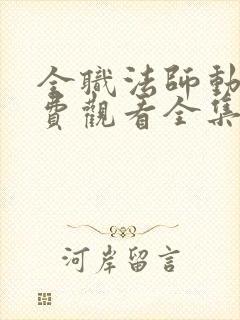 全職法師動
費觀看全集
河岸留言